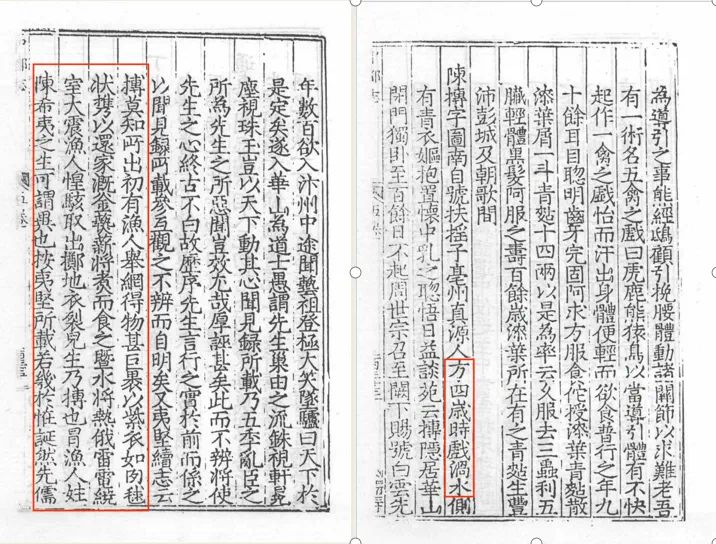 為導引之事能經鴟顧引挽腰體動諸關節以求難老吾
有一術名五禽之戲曰虎鹿熊猿鳥以當導引體有不快
起作一禽之戲怡而汗出身體便輕而欲食普行之年九
十餘耳目聰明齒牙完固阿求方服食佗授漆葉青黏散
漆葉屑一斗青黏十四兩以是為率云久服去三蟲利五
臟輕體黑髮阿服之壽百餘歲漆葉所在有之青黏生豐
沛彭城及朝歌間
陳摶字圖南自號扶搖子亳州真源人方四歲時戲渦水側
有青衣嫗抱置懷中乳之聰悟日益談苑云摶隱居華山
閉門獨卧至百餘日不起周世宗召至闕下賜號白雲先
年數百欲入汴州中途聞藝祖登極大笑墜騾曰天下於
是定矣遂入華山為道士愚謂先生巢由之流銖視軒冕
塵視珠玉豈以天下動其心聞見錄所載乃五季亂臣之
所為先生之所惡聞豈效尤哉厚誣甚矣此而不辨將使
先生之心終古不白故歷序先生言行之實於前而係之
以聞見錄所載參互觀之不辨而自明矣又夷堅續志云
摶莫知所出初有漁人舉網得物甚巨裹以紫衣如肉毬
狀攜以還家溉釜爇薪將煮而食之暨水將熱俄雷電繞
室大震漁人惶駭取出擲地衣裂兒生乃摶也冒漁人姓
陳希夷之生可謂異也按夷堅所載若幾於怪誕然先儒